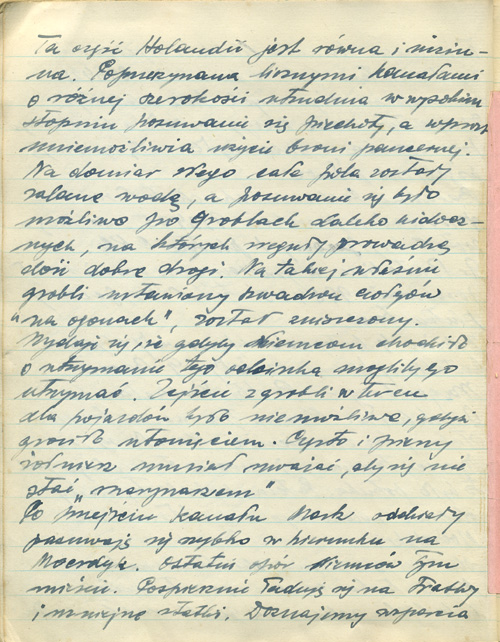 Ta część Holandii jest równa i nizin-
na. Poprzerzynana licznymi kanałami
o różnej szerokości utrudnia w wysokim
stopniu posuwanie się piechoty, a wprost
uniemożliwia użycie broni pancernej.
Na domiar złego całe pola zostały
zalane wodą, a posuwanie się było
możliwe po groblach daleko widocz-
nych, na których reguły prowadzą
dość dobre drogi. Na takiej właśnie
grobli ustawiony szwadron czołgów
"na ogonach", został zniszczony.
Wydaje się, że gdyby Niemcom chodziło
o utrzymanie tego odcinka mogliby go
utrzymać. Zejście z grobli w
dla pojazdów było niemożliwe, gdyż
groziło utonięciem. Często i pieszy
żołnierz musiał uważać, aby się nie
stać "marynarzem"
Po przejściu kanału Mark oddziały
posuwają się szybko w kierunku na
Moerdyk. Ostatni opór Niemców tym
mieście. Pospiesznie ładują się na tratwy
i mniejsze statki. Doznajemy wsparcia